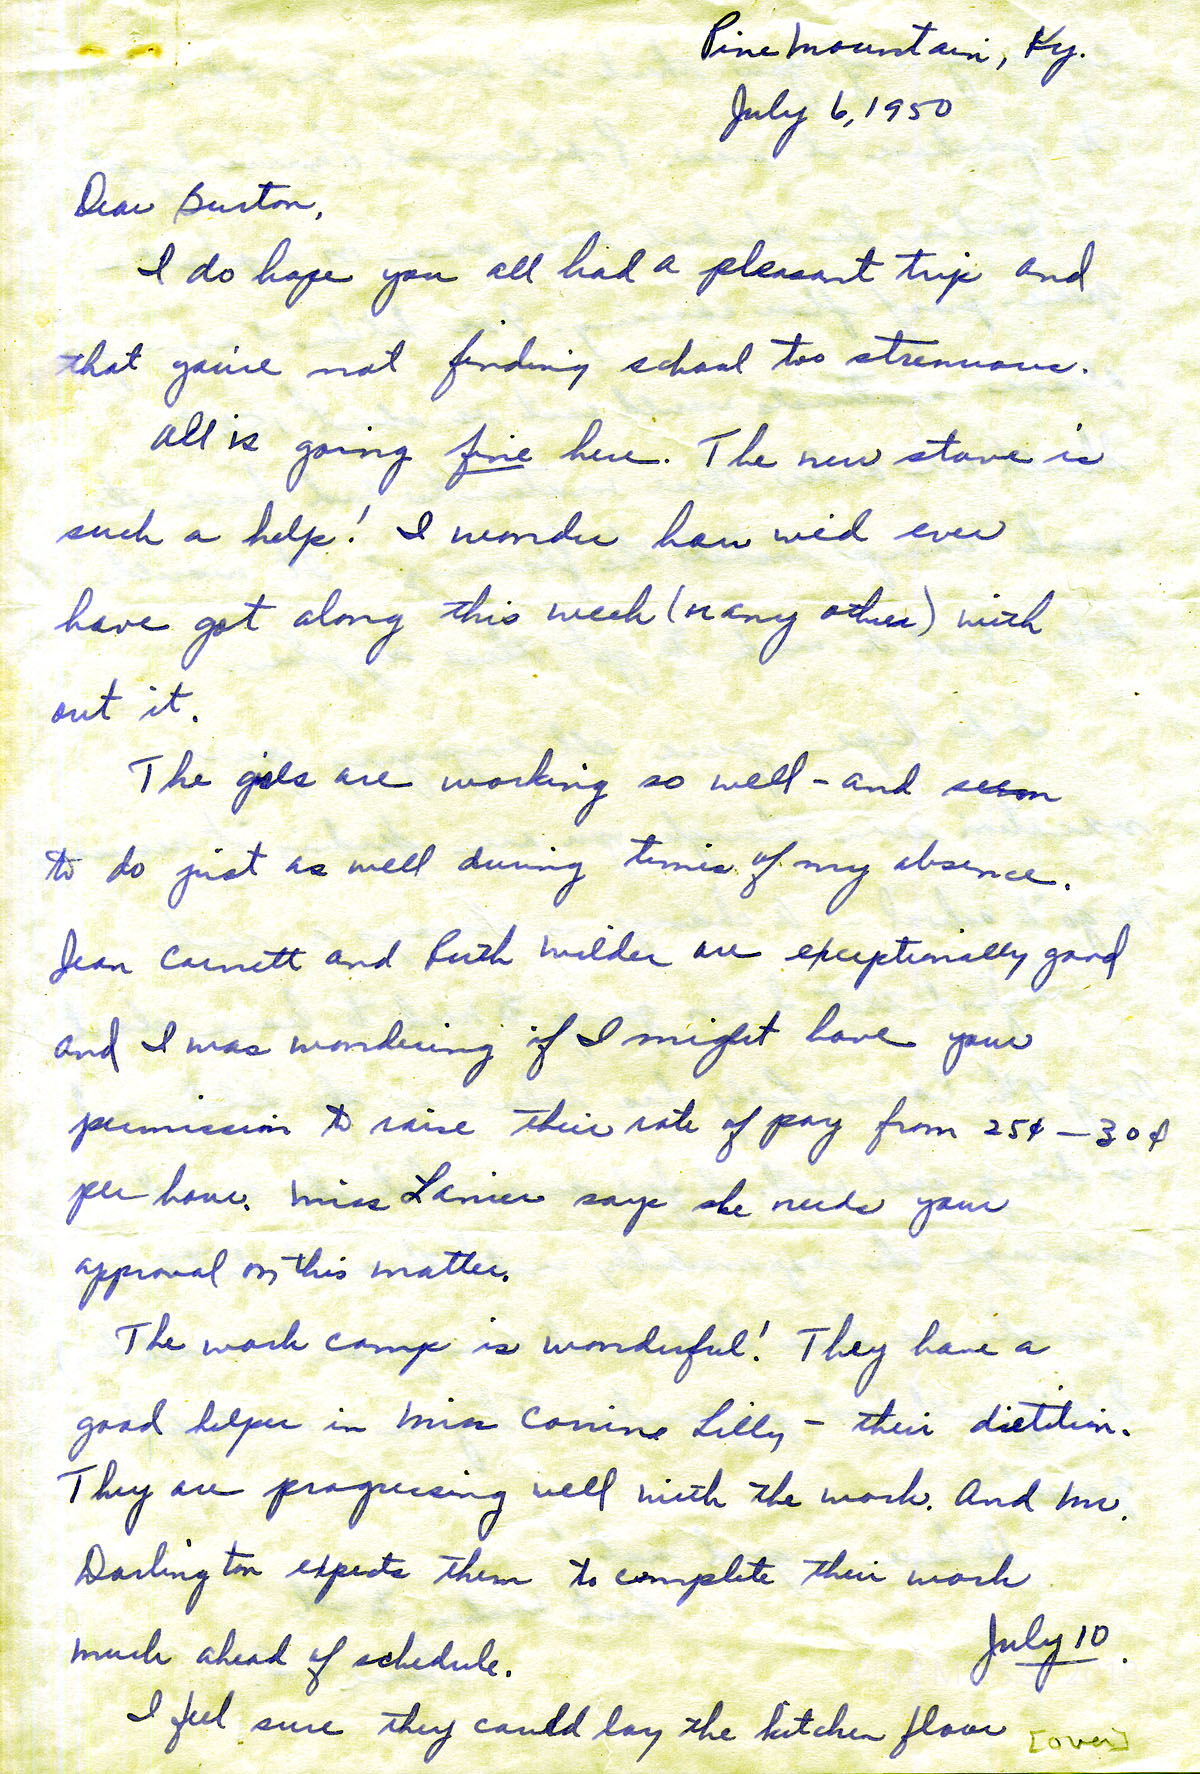 Pine Mountain, Ky.
July 6, 1950
Dear Burton,
I do hope you all had a pleasant trip and
that you're not finding school too strenuous.
All is going fine here. The new stove is
such a help! I wonder how we'd ever
have got along this week (or any other) with
out it.
The girls are working so well - and seem
to do just as well during times of my absence.
Jean Cornett and Ruth Wilder are exceptionally good
and I was wondering if I might have your
permission to raise their rate of pay from 25¢ - 30¢
per hour. Miss Lanier says she needs your
approval on this matter.
The work camp is wonderful! They have a
good helper in Miss Connine Lilly - their dietitian.
They are progressing well with the work. And Mr.
Darlington expects them to complete their work
much ahead of schedule.
July 10.
I feel sure they could lay the kitchen floor
[over]